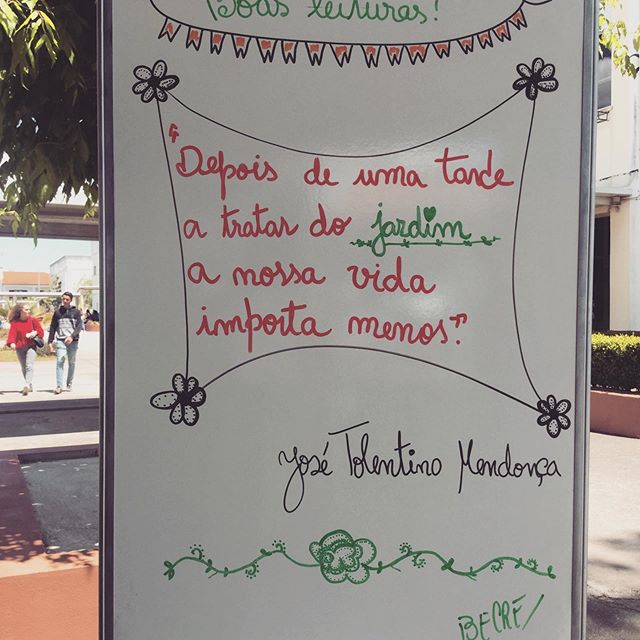 Boas leituras!
"Depois de uma tarde
a tratar do jardim
a nossa vida
importa menos."
José Tolentino Mendonça
BECRE/